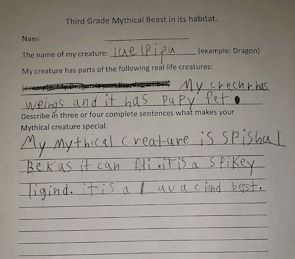 Third Grade Mythical Beast in its habitat.
Name
The name of my creature: (example: Dragon)
My creature has parts of the following real life creatures:
My crechr has
weings and it has pupy fet.
Describe in three or four complete sentences what makes your
Mythical creature special.
My mythical creature is spishul
Bekus it can fli. it is a spikey
ligind. it is a 1 uv a cind best.